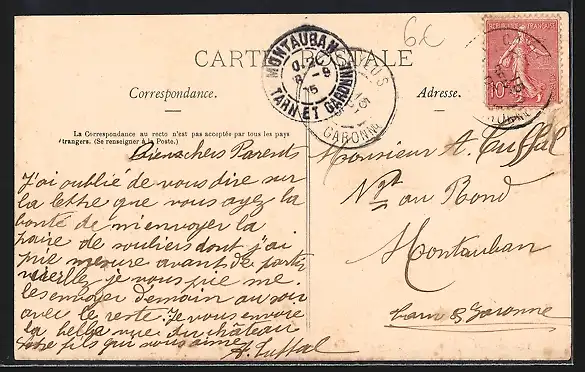 CARTE POSTALE
6c
Correspondance.
Adresse.
La Correspondance au recto n'est pas acceptée par tous les pays
étrangers. (Se renseigner à la Poste.)
MONTAUBAN
8 -9
TARN ET GARONNE
GARONNE
REPUBLIQUE FRANÇAISE
10
Bien chers Parents
J'ai oublié de vous dire sur
la lettre que vous ayez la
bonté de m'envoyer la
paire de souliers dont j'ai
prie mesure avant de partir
veuillez je vous prie me
les envoyer demain au soir
avec le reste. Je vous envoie
la belle vue du château
votre fils qui vous aime
A. Tuffal
Monsieur A. Tuffal
Ngt au Rond
Montauban
Tarn & Garonne